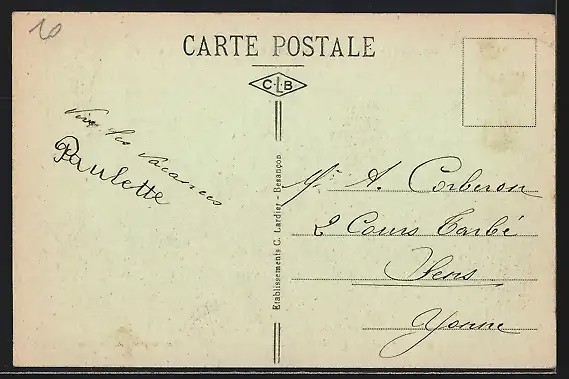 20
CARTE POSTALE
C·L·B
Vive les vacances
Paulette
Etablissements C. Lardier - Besançon
Mr A. Corberon
2 Cours Tarbé
Sens
Yonne